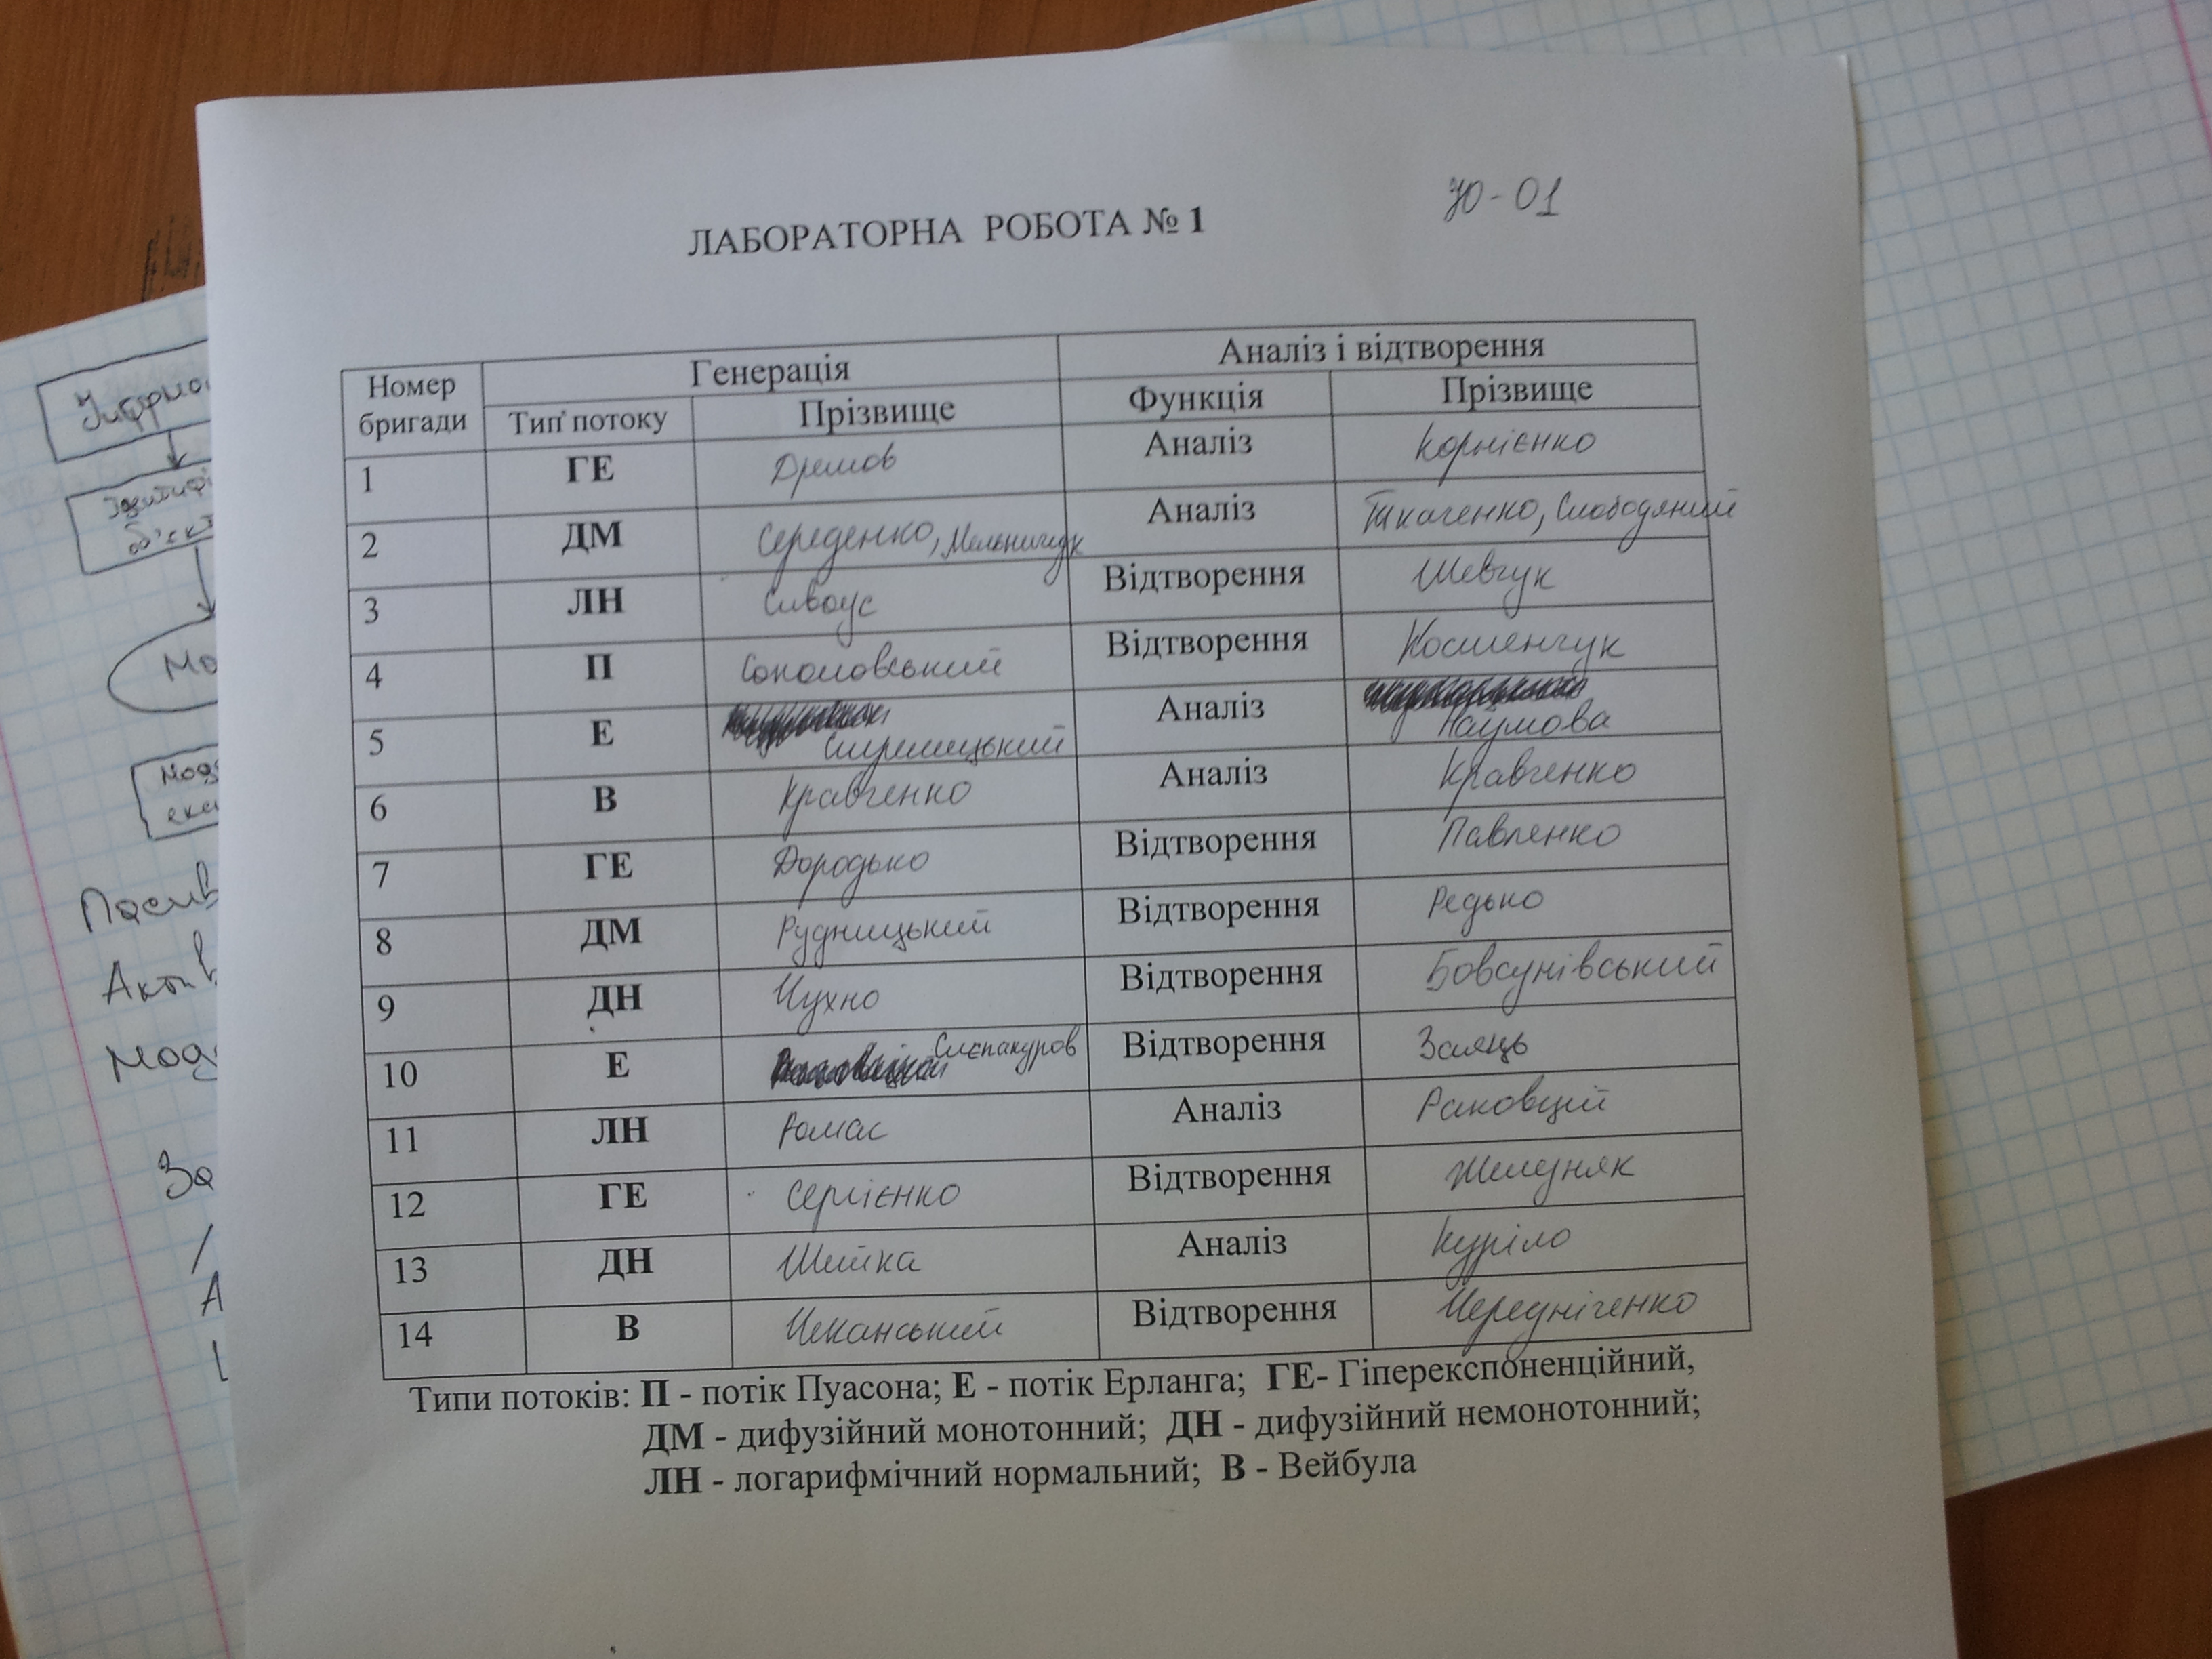 ЛАБОРАТОРНА РОБОТА № 1
Номер бригади Генерація Аналіз і відтворення
Тип потоку Прізвище Функція Прізвище
1 ГЕ Дремов Аналіз Корнієнко
2 ДМ Середенко, Мельничук Аналіз Ткаченко, Слободяний
3 ЛН Сивоус Відтворення Шевчук
4 П Соколовський Відтворення Костенчук
5 Е Аналіз Наумова
6 В Кравченко Аналіз Кравченко
7 ГЕ Дородько Відтворення Павленко
8 ДМ Рудницький Відтворення Редько
9 ДН Чухно Відтворення Бовсунівський
10 Е Слєпакуров Відтворення Заяць
11 ЛН Ромас Аналіз Раковцій
12 ГЕ Сергієнко Відтворення Железняк
13 ДН Шийка Аналіз Куріло
14 В Чеканський Відтворення Чередніченко
Типи потоків: П - потік Пуасона; Е - потік Ерланга; ГЕ- Гіперекспоненційний,
ДМ - дифузійний монотонний; ДН - дифузійний немонотонний;
ЛН - логарифмічний нормальний; В - Вейбула